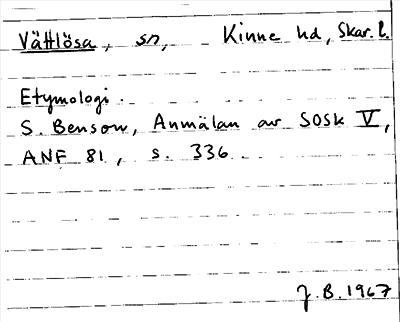 Vättlösa, sn, Kinne hd, Skar. l.
Etymologi.
S. Benson, Anmälan av SOSK V,
ANF 81, s. 336
J. B. 1967